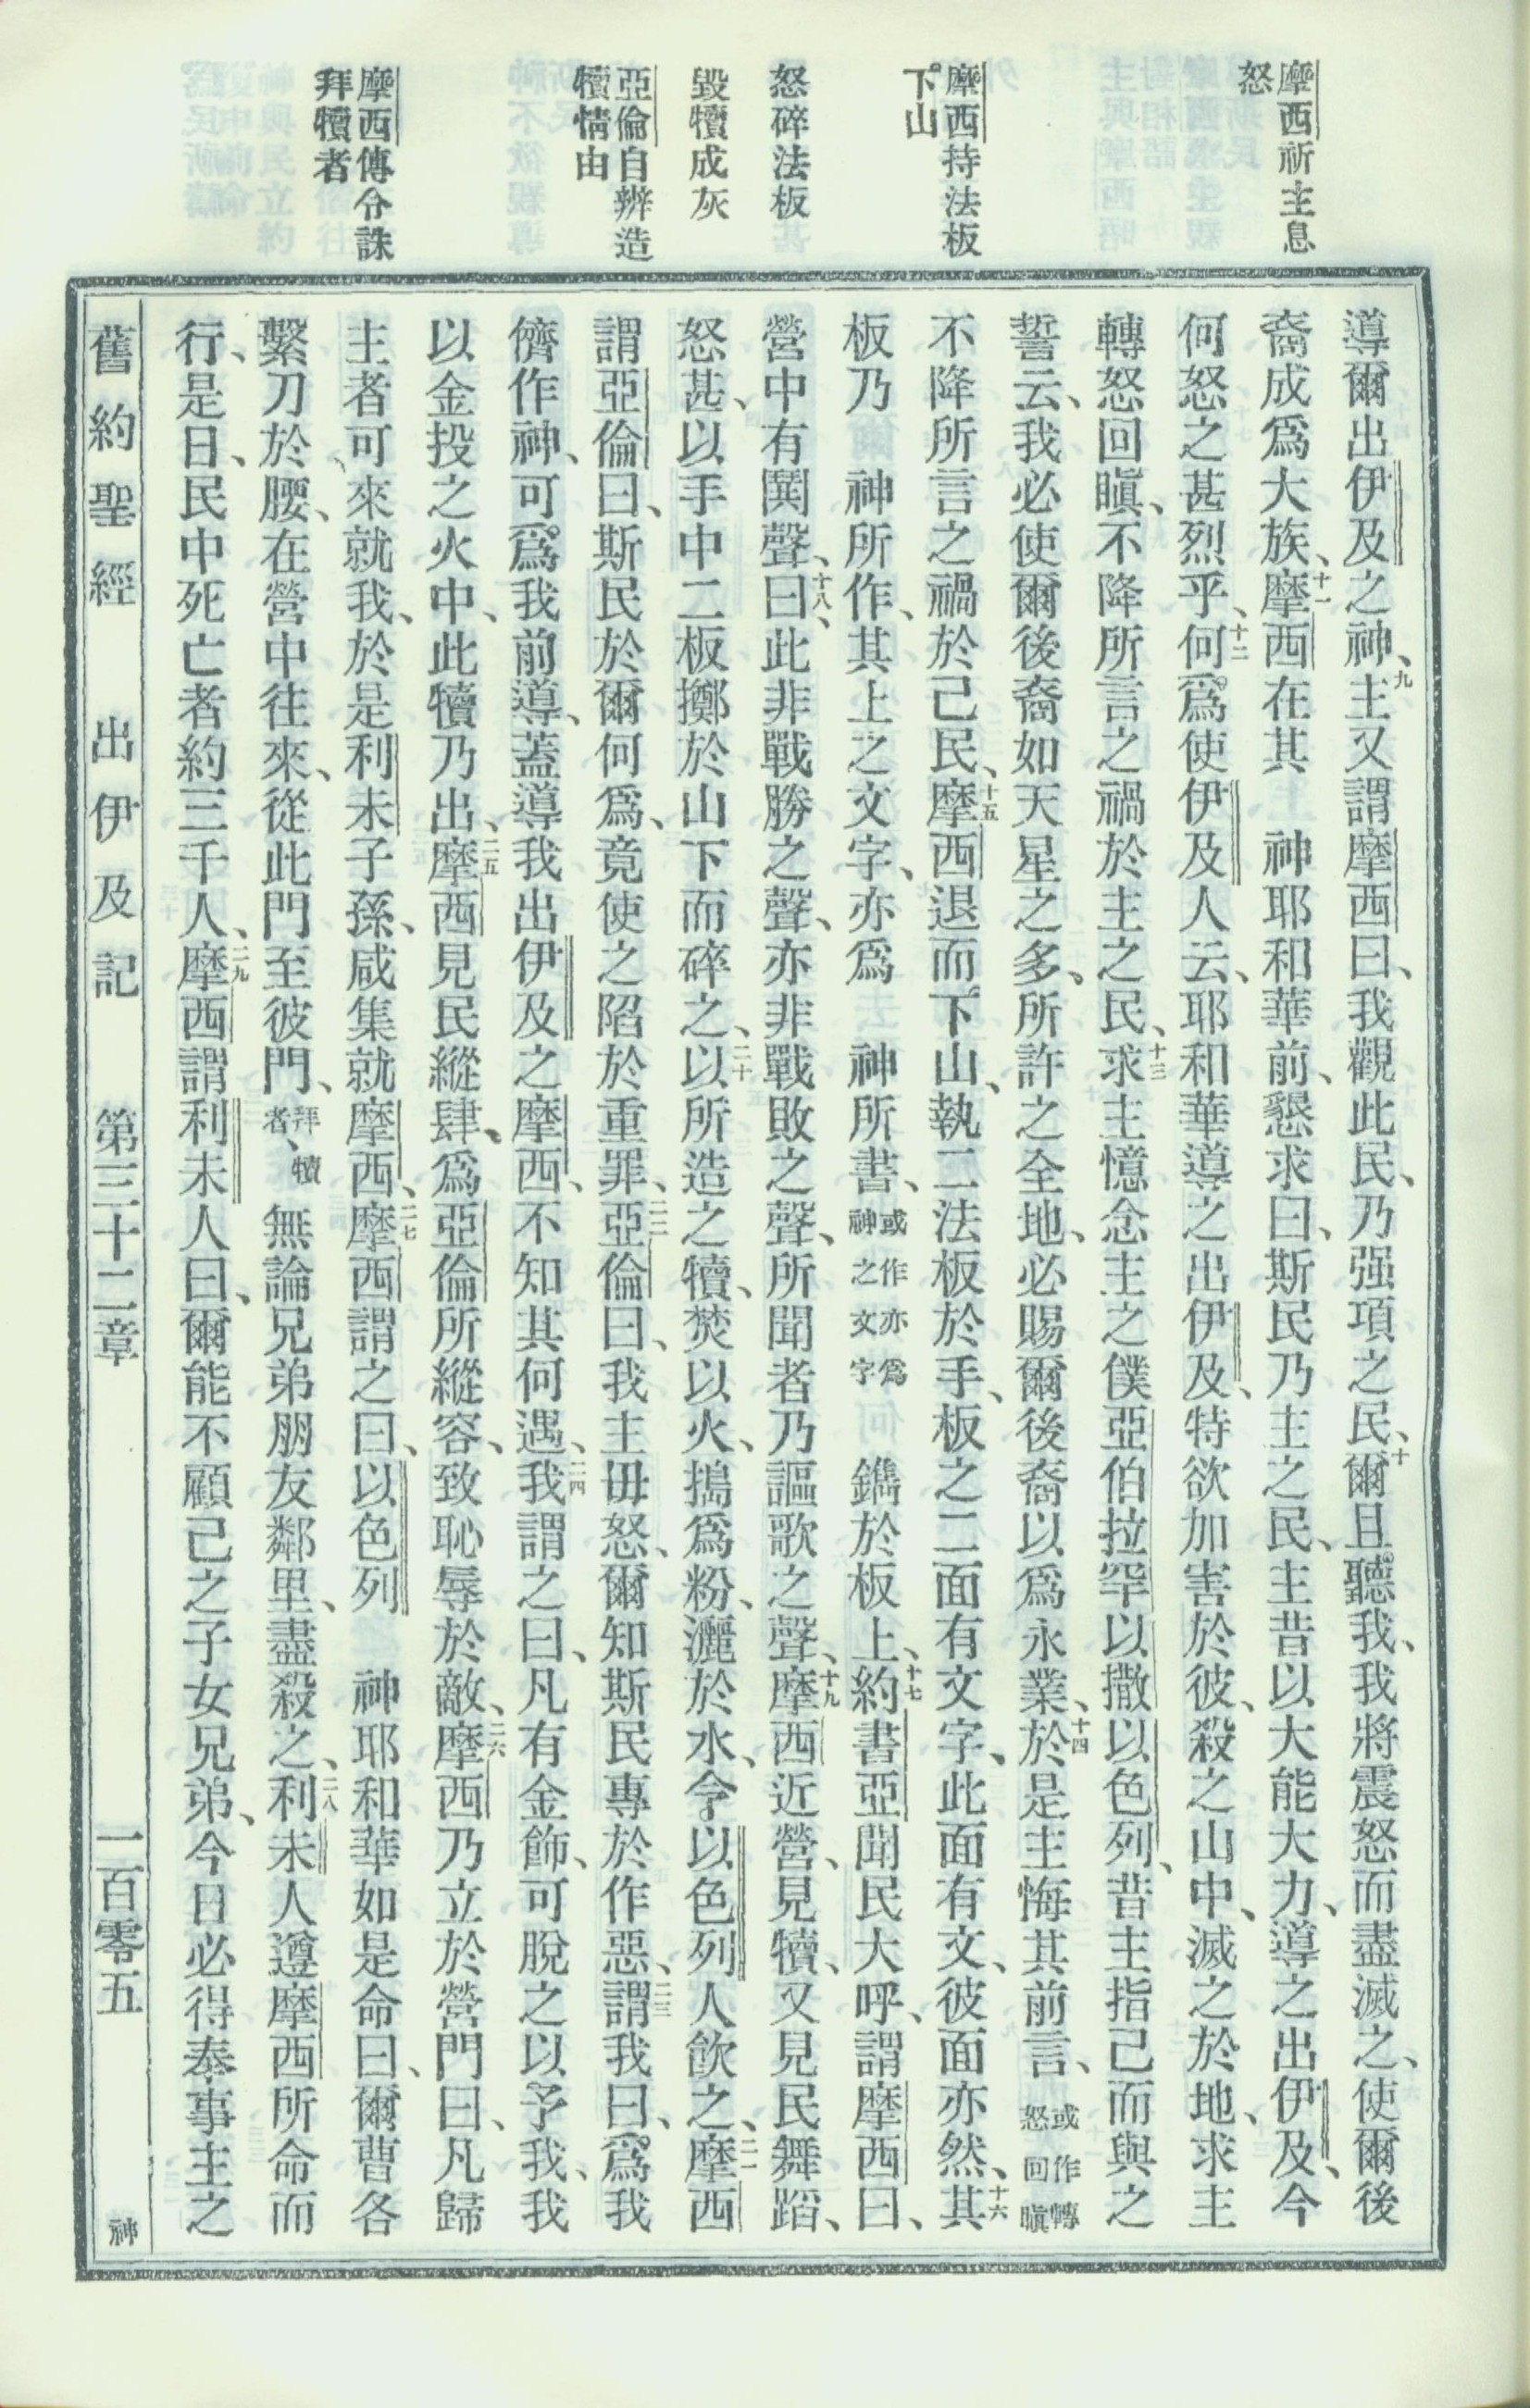 摩西祈主息
怒
摩西持法板
下山
怒碎法板
毀犢成灰
亞倫自辨造
犢情由
摩西傳令誅
拜犢者
導爾出伊及之神、九主又謂摩西曰、我觀此民、乃强項之民、十爾且聽我、我將震怒而盡滅之、使爾後
裔成爲大族、十一摩西在其 神耶和華前、懇求曰、斯民乃主之民、主昔以大能大力、導之出伊及、今
何怒之甚烈乎、十二何爲使伊及人云、耶和華導之出伊及、特欲加害於彼、殺之山中、滅之於地、求主
轉怒回瞋、不降所言之禍於主之民、十三求主憶念主之僕亞伯拉罕以撒以色列、昔主指己而與之
誓云、我必使爾後裔如天星之多、所許之全地、必賜爾後裔以爲永業、十四於是主悔其前言、或作轉怒回瞋
不降所言之禍於己民、十五摩西退而下山、執二法板於手、板之二面有文字、此面有文、彼面亦然、十六其
板乃 神所作、其上之文字、亦爲 神所書、或作亦爲神之文字 鐫於板上、十七約書亞聞民大呼、謂摩西曰、
營中有鬨聲、十八曰、此非戰勝之聲、亦非戰敗之聲、所聞者乃謳歌之聲、十九摩西近營、見犢、又見民舞蹈、
怒甚、以手中二板擲於山下而碎之、二十以所造之犢、焚以火、搗爲粉、灑於水、令以色列人飲之、二一摩西
謂亞倫曰、斯民於爾何爲、竟使之陷於重罪、二二亞倫曰、我主毋怒、爾知斯民專於作惡、二三謂我曰、爲我
儕作神、可爲我前導、蓋導我出伊及之摩西、不知其何遇、二四我謂之曰、凡有金飾、可脫之以予我、我
以金投之火中、此犢乃出、二五摩西見民縱肆、爲亞倫所縱容、致恥辱於敵、二六摩西乃立於營門曰、凡歸
主者可來就我、於是利未子孫、咸集就摩西、二七摩西謂之曰、以色列 神耶和華如是命曰、爾曹各
繫刀於腰、在營中往來、從此門至彼門、拜犢者、無論兄弟朋友鄰里、盡殺之、二八利未人遵摩西所命而
行、是日、民中死亡者約三千人、二九摩西謂利未人曰、爾能不顧己之子女兄弟、今日必得奉事主之
舊約聖經 出伊及記 第三十二章 一百零五 神